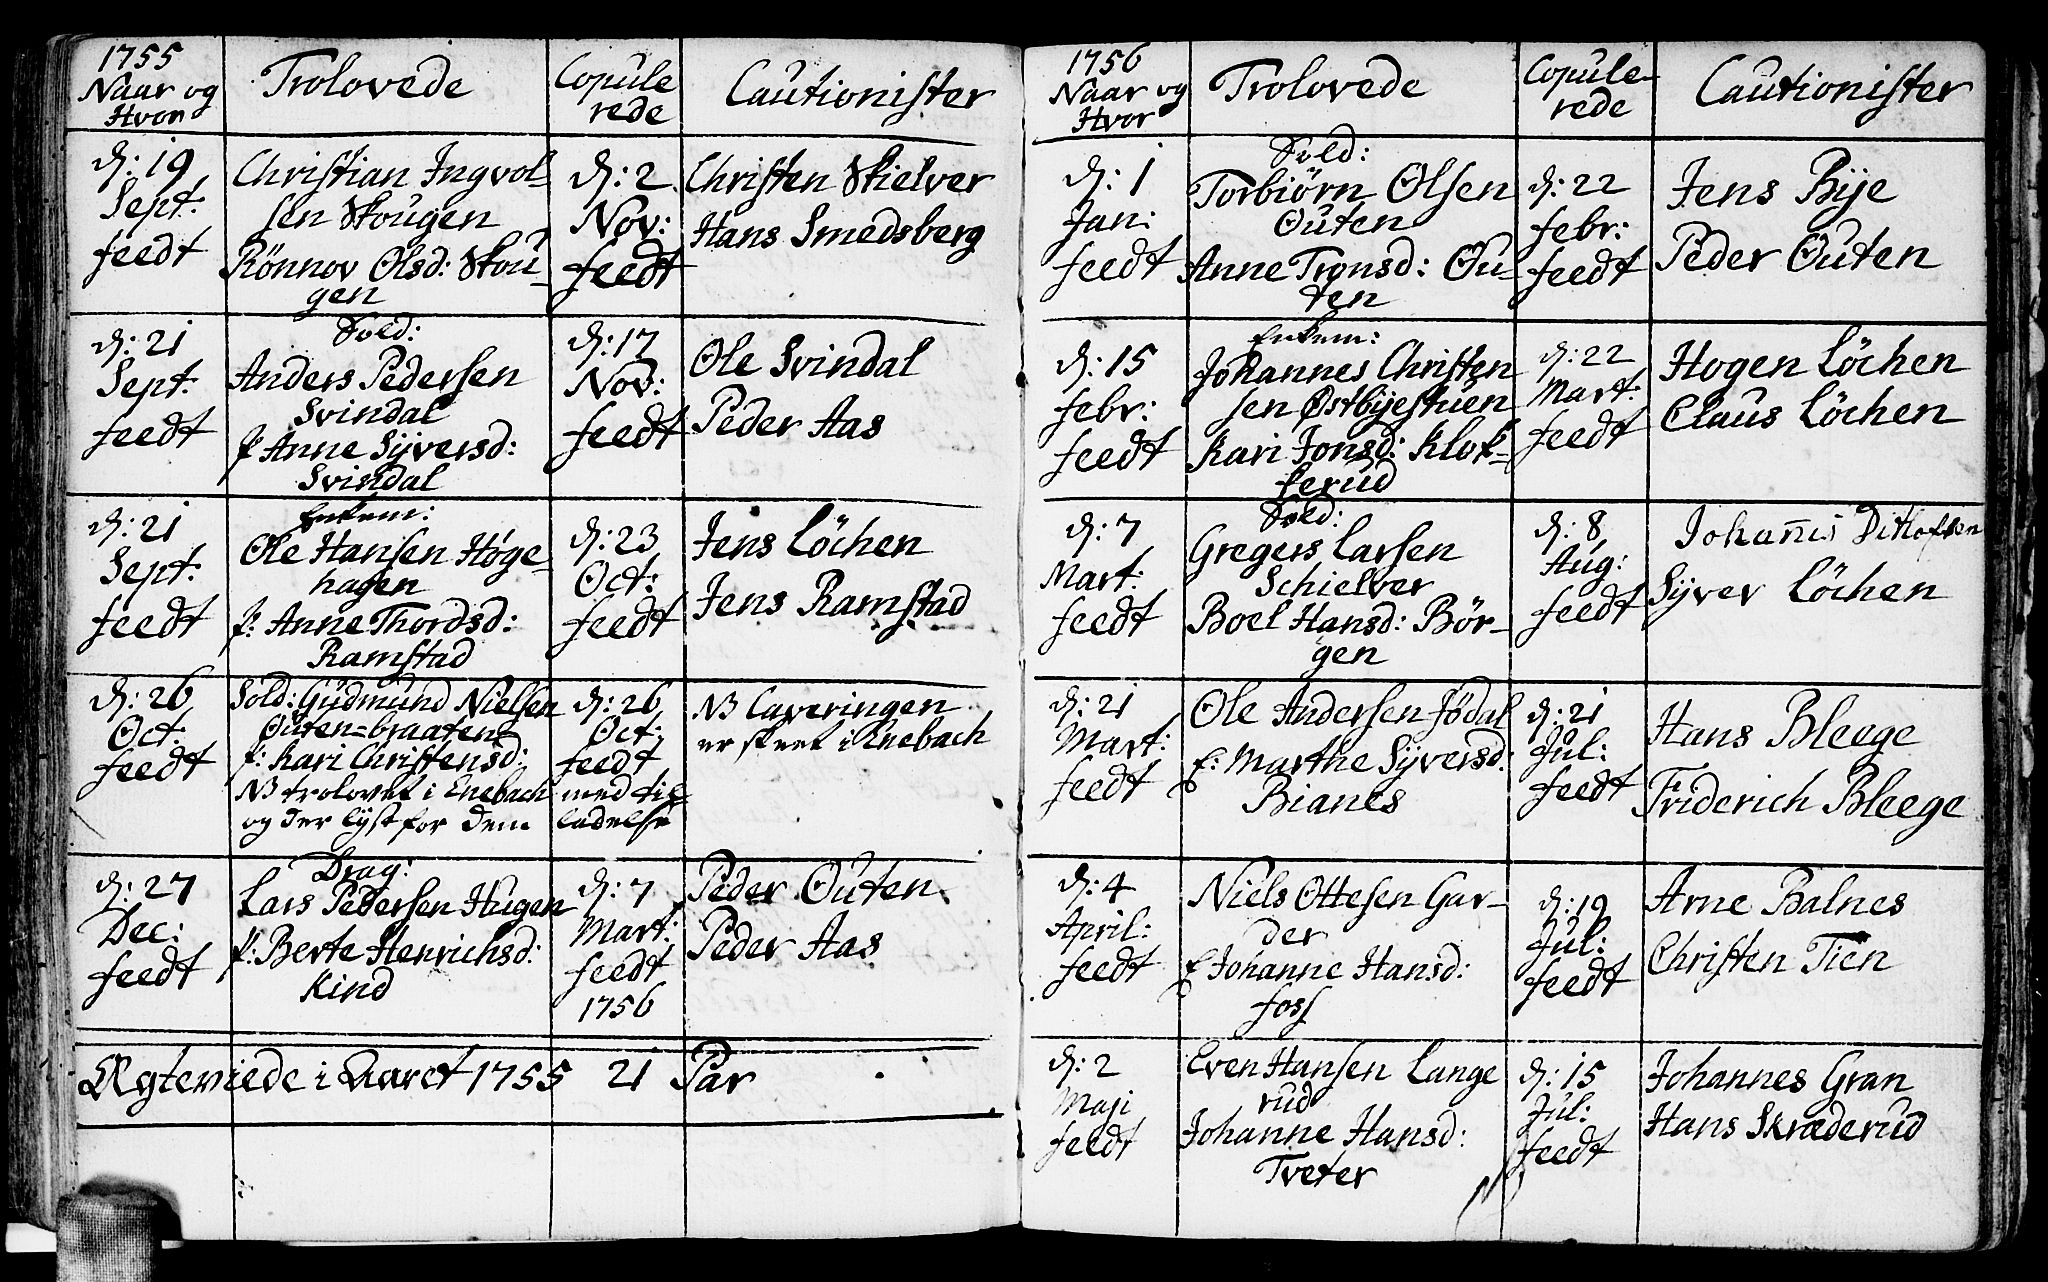 1755
Naar og
Hvor
Trolovede
Copule
rede
Cautionister
d: 19
Sept:
feedt
Christian Ingvol-
sen Skougen
Rönnov Olsd: Skou-
gen
d: 2
Nov:
feedt
Christen Skielver
Hans Smedsberg
d: 21
Sept:
feedt
Sold:
Anders Pedersen
Svindal
P Anne Syversd:
Svindal
d: 17
Nov:
feedt
Ole Svindal
Peder Aas
d: 21
Sept:
feedt
Enkem:
Ole Hansen Høge-
hagen
P: Anne Thordsd:
Ramstad
d: 23
Oct:
feedt
Jens Löchen
Jens Ramstad
d: 26
Oct:
feedt
Sold: Gudmund Nielsen
Outen-braaten
P: Kari Christensd:
NB trolovet i Enebach
og der lyst for dem
d: 26
Oct:
feedt
med til
ladelse
NB Caveringen
er skeet i Enebach
d: 27
Dec:
feedt
Drag:
Lars Pedersen Haugen
P: Berte Henrichsd:
Kind
d: 7
Mart:
feedt
1756
Peder Outen
Peder Aas
Ægteviede i Aaret 1755 21 Par
1756
Naar og
Hvor
Trolovede
Copule-
rede
Cautionister
d: 1
Jan:
feedt
Sold:
Torbiörn Olsen
Outen
Anne Tronsd: Ou-
ten
d: 22
febr:
feedt
Jens Bye
Peder Outen
d: 15
febr:
feedt
Enkem:
Johannes Christen
sen Østbyestuen
Kari Jonsd: Klok-
kerud
d: 22
Mart:
feedt
Hogen Löchen
Claus Löchen
d: 7
Mart:
feedt
Sold:
Gregers Larsen
Schielver
Boel Hansd: Bör-
gen
d: 8
Aug:
feedt
Johanis Dithofsen
Syver Löchen
d: 21
Mart:
feedt
Ole Andersen födal
E: Marthe Syversd:
Bianes
d: 21
Jul:
feedt
Hans Bleege
Friderich Bleege
d: 4
April:
feedt
Niels Ottesen Gar-
der
E Johanne Hansd:
foss
d: 19
Jul:
feedt
Arne Balnes
Christen Tien
d: 2
Maji
feedt
Even Hansen Lange
rud
Johanne Hansd:
Tveter
d: 15
Jul:
feedt
Johannes Gran
Hans Skræderud